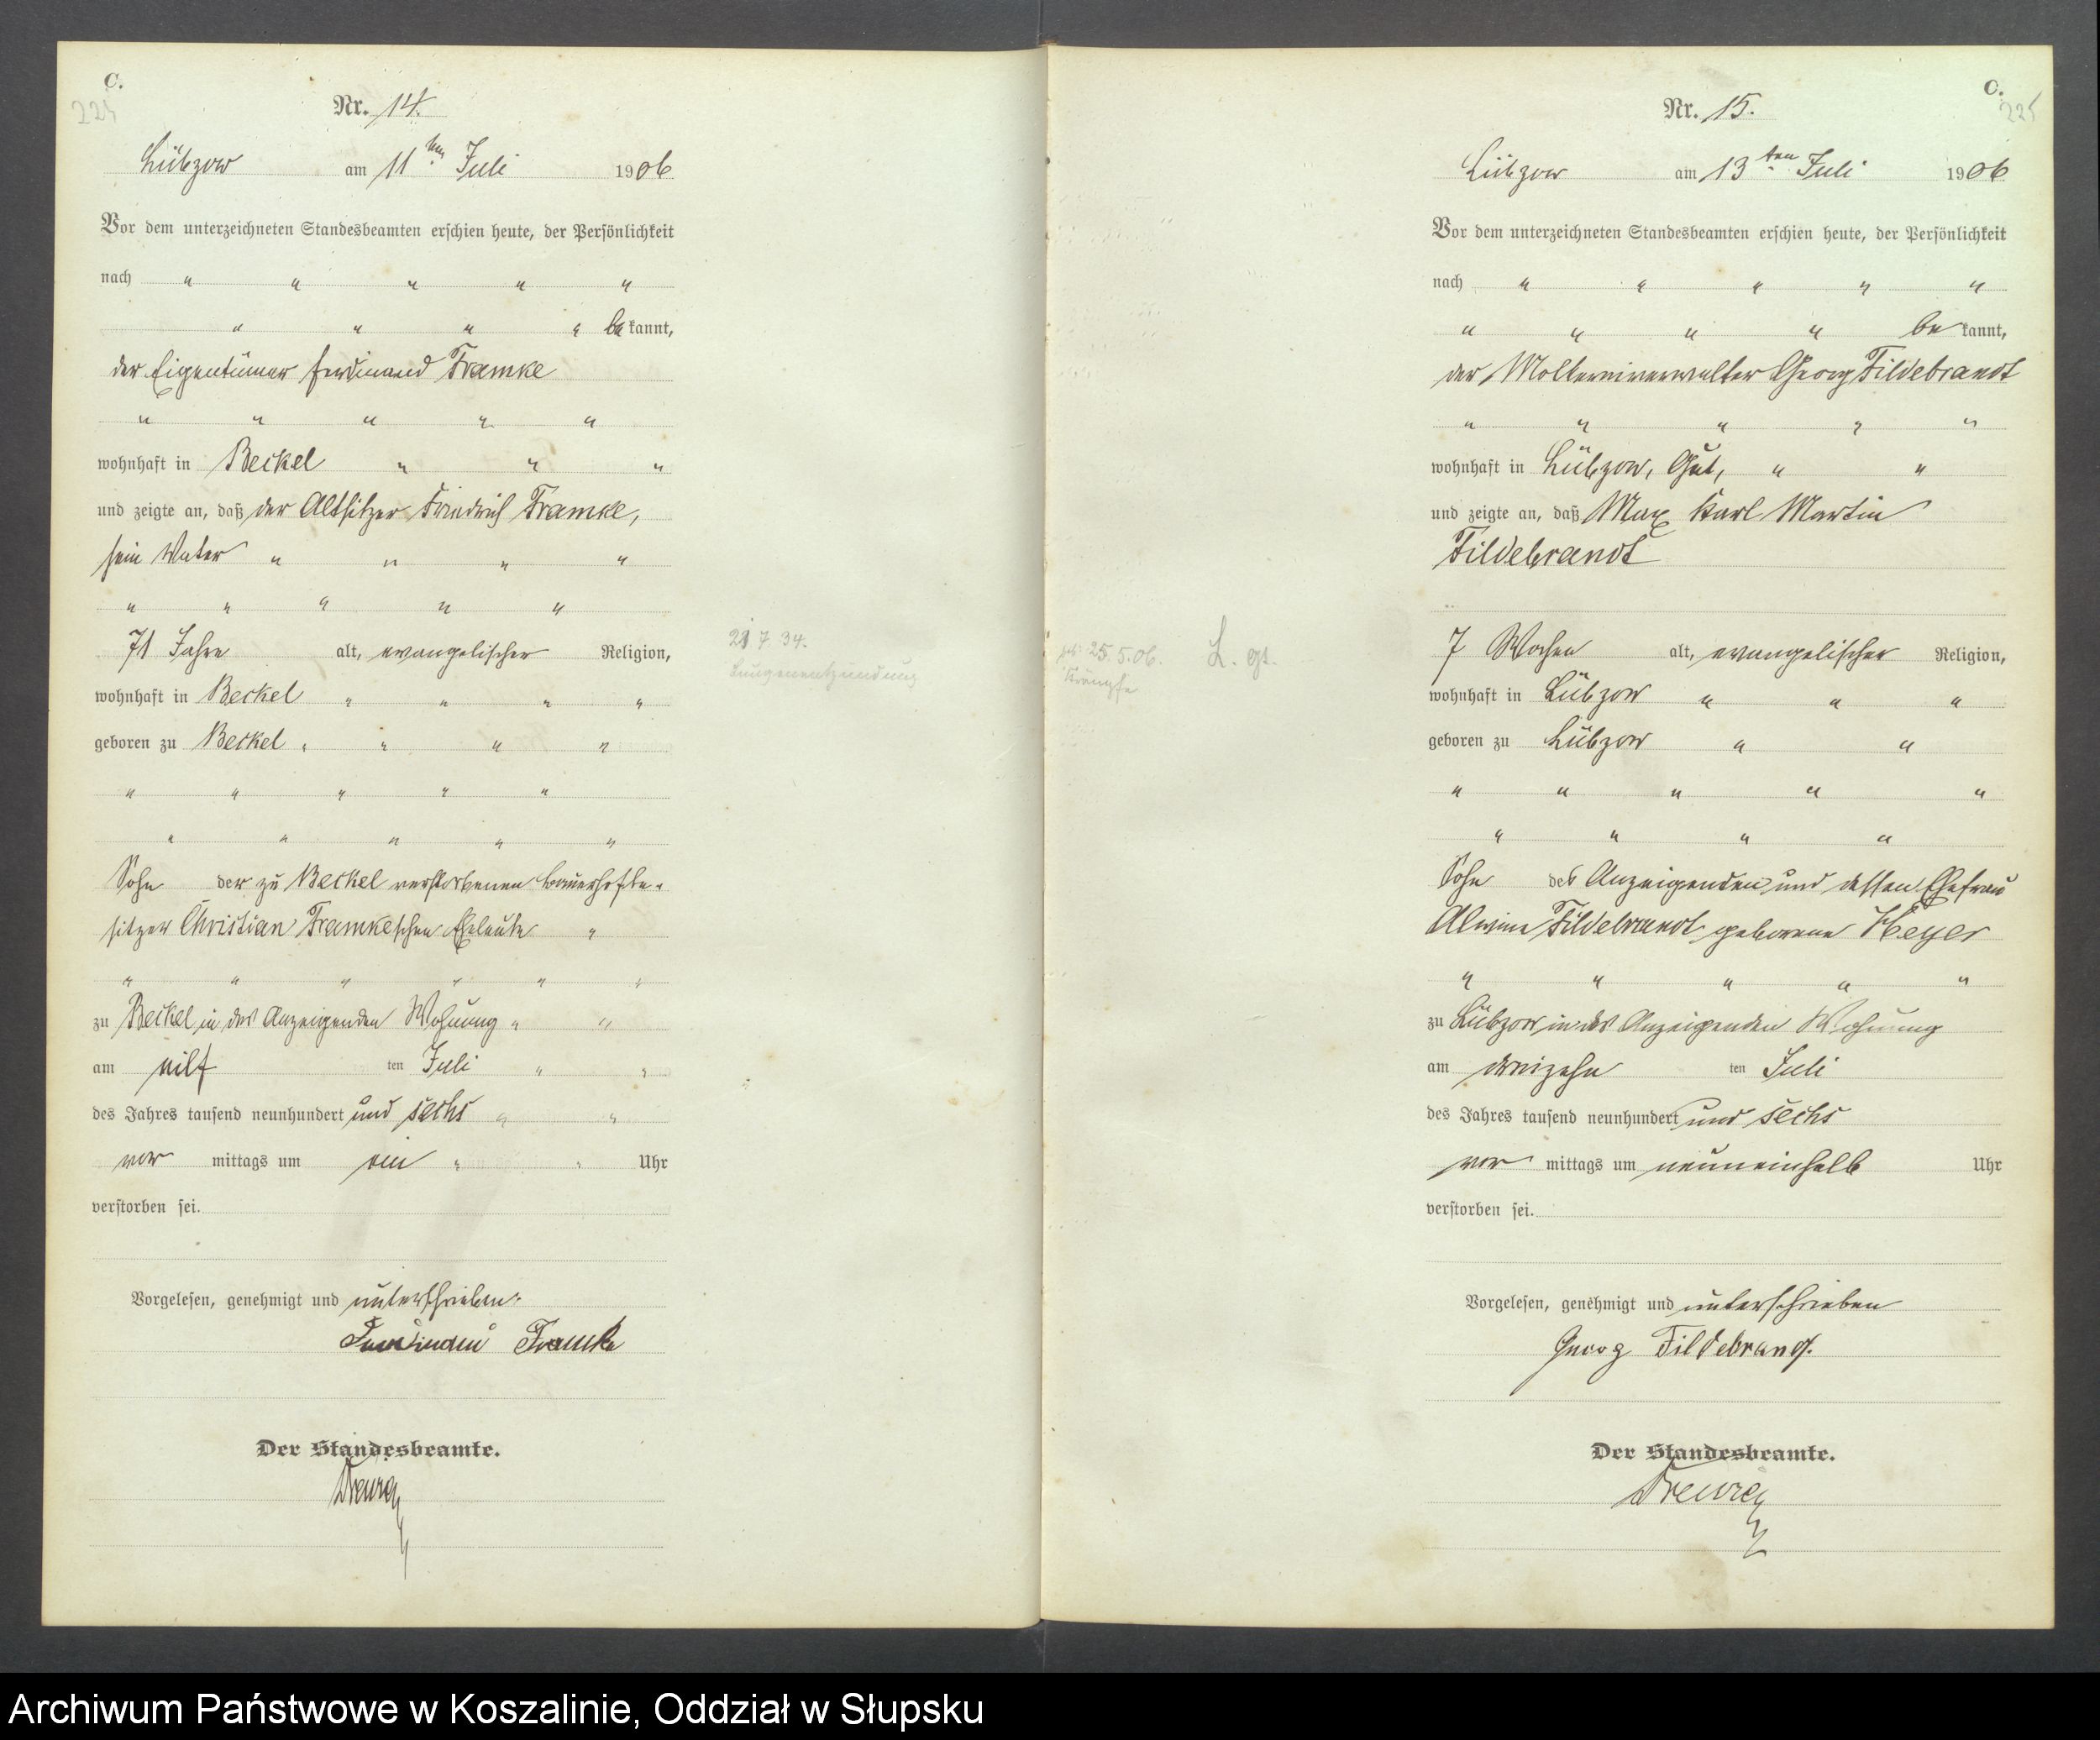 C.
224
Nr. 14.
Lübzow am 11ten Juli 1906
Vor dem unterzeichneten Standesbeamten erschien heute, der Persönlichkeit
nach " " " " "
" " " " bekannt,
der Eigentümer Ferdinand Framke
" " " " "
wohnhaft in Beckel " " "
und zeigte an, daß der Altsitzer Friedrich Framke,
sein Vater " " " "
" " " " "
71 Jahre alt, evangelischer Religion,
wohnhaft in Beckel " " " "
geboren zu Beckel " " " "
" " " " "
" " " " "
Sohn der zu Beckel verstorbenen Bauerhofbe-
sitzer Christian Framkeschen Eheleute "
" " " " " "
zu Beckel in des Anzeigenden Wohnung " "
am eilf ten Juli " "
des Jahres tausend neunhundert und sechs " "
vor mittags um ein " " Uhr
verstorben sei.
Vorgelesen, genehmigt und unterschrieben.
Ferdinand Framke
Der Standesbeamte.
21 7 34.
Lungenentzündung
C.
225
Nr. 15.
Lübzow am 13ten Juli 1906
Vor dem unterzeichneten Standesbeamten erschien heute, der Persönlichkeit
nach " " " " "
" " " " bekannt,
der Molkereiverwalter Georg Fildebrandt
" " " " "
wohnhaft in Lübzow, Gut, " "
und zeigte an, daß Max Karl Martin
Fildebrandt
7 Wochen alt, evangelischer Religion,
wohnhaft in Lübzow " " "
geboren zu Lübzow " "
" " " " "
" " " "
Sohn des Anzeigenden und dessen Ehefrau
Alwine Fildebrandt geborene Heyer
" " " " "
zu Lübzow in des Anzeigenden Wohnung
am dreizehn ten Juli
des Jahres tausend neunhundert und sechs
vor mittags um neuneinhalb Uhr
verstorben sei.
Vorgelesen, genehmigt und unterschrieben
Georg Fildebrandt.
Der Standesbeamte.
geb. 25.5.06.
Krämpfe
Archiwum Państwowe w Koszalinie, Oddział w Słupsku